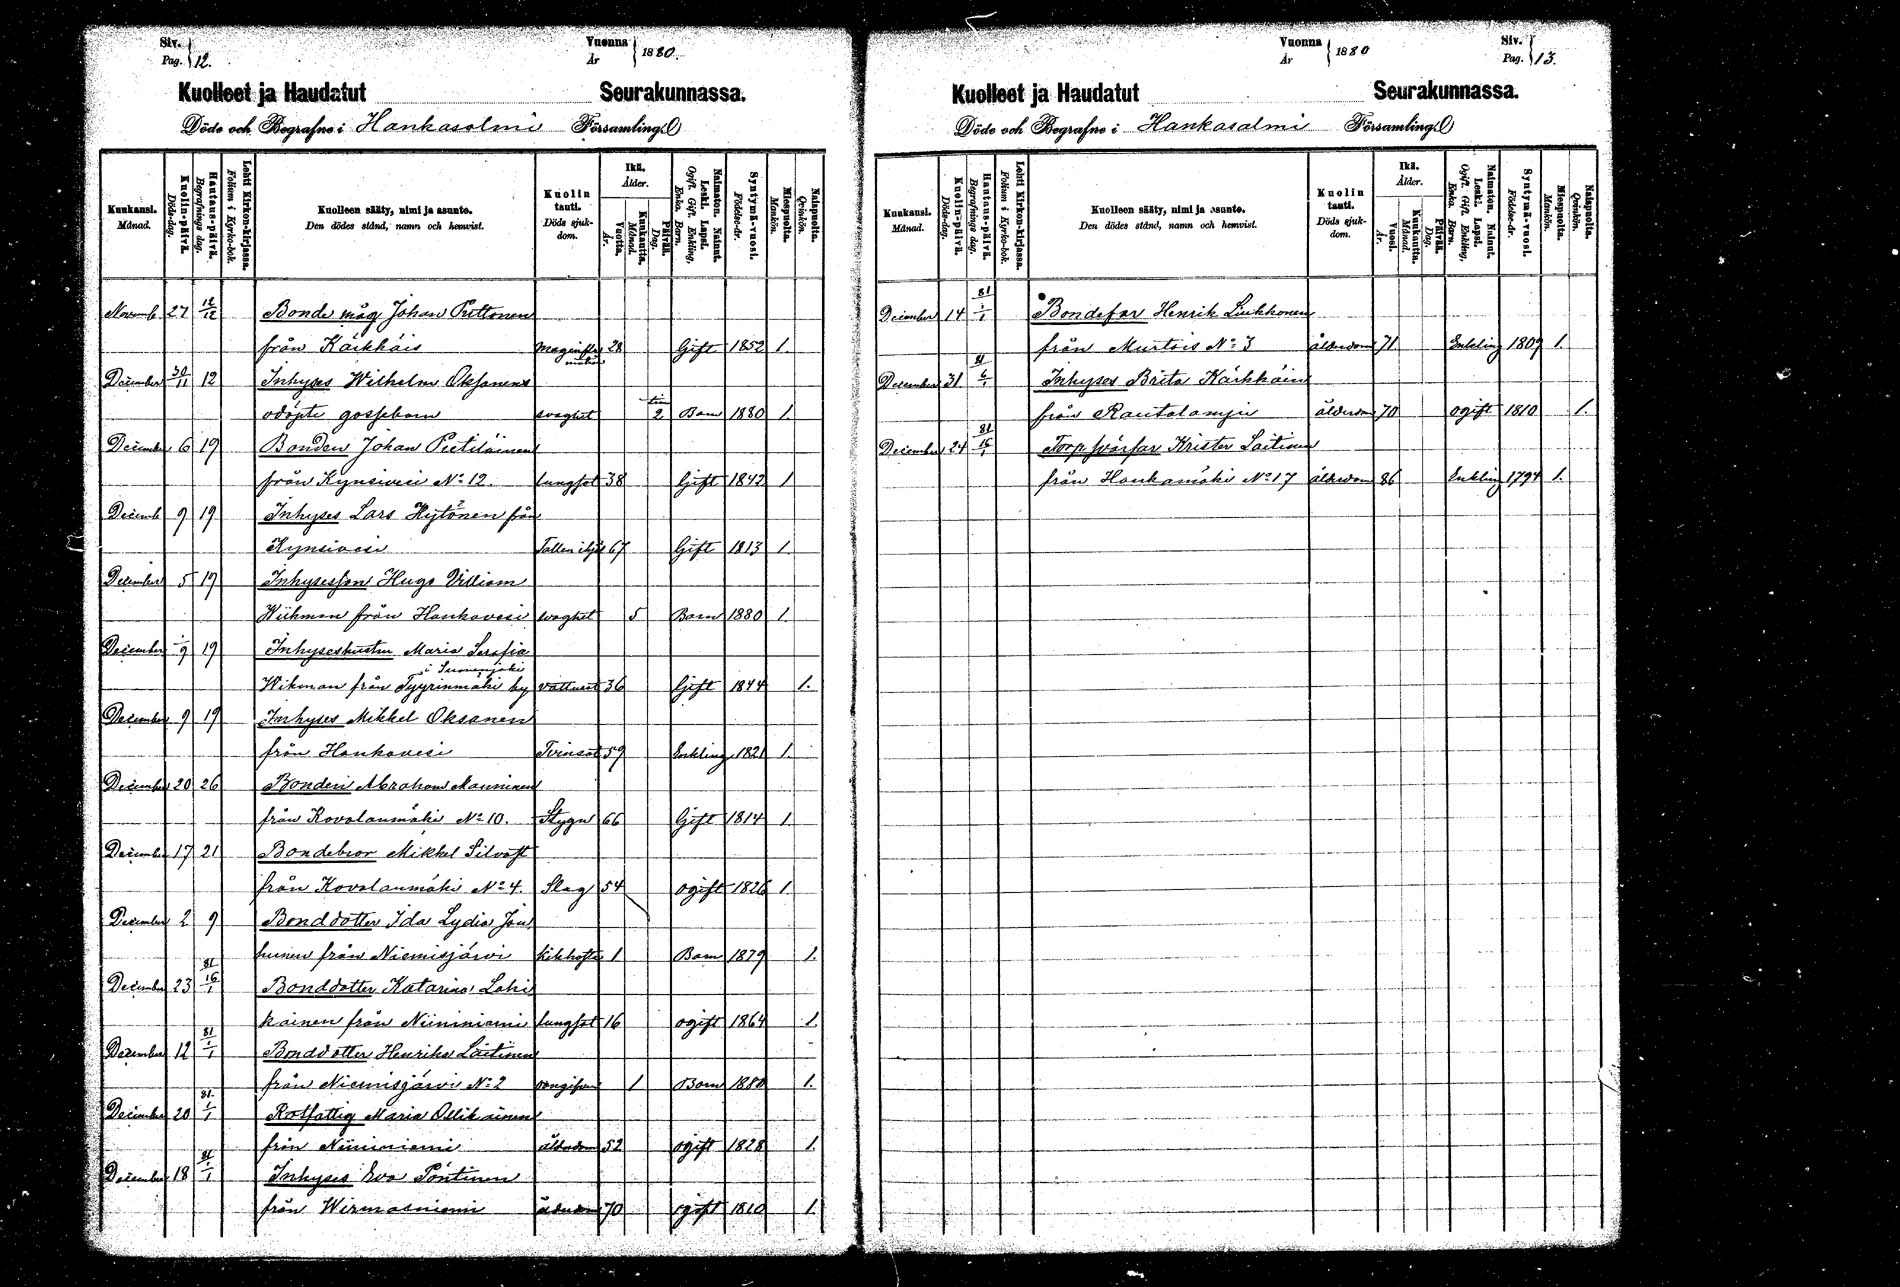 Siv. Pag. 12. Vuonna År 1880.
Kuolleet ja Haudatut Seurakunnassa.
Döde och Begrafne i Hankasalmi Församling
Kuukausi. Månad. Kuolin-päivä. Döds-dag. Hautaus-päivä. Begrafnings dag. Lehti Kirkon-kirjassa. Folium i Kyrko-bok. Kuolleen sääty, nimi ja asunto. Den dödes stånd, namn och hemvist. Kuolin tauti. Döds sjuk-dom. Ikä. Ålder. Vuotta. År. Kuukautta. Månad. Päivää. Dag. Naimaton. Nainut. Leski. Lapsi. Ogift. Gift. Enkling. Enka. Barn. Syntymä-vuosi. Födelse-år. Miespuolta. Mankön. Naispuolta. Qvinkön.
Novemb 27 12/12 Bonde måg Johan Puttonen
från Kärkkäis 28 Gift 1852 1.
December 30/11 12 Inhyses Wilhelm Oksanens
odöpte gossebarn svaghet 2 tim Barn 1880 1.
December 6 19 Bonden Johan Pietiläinen
från Kynsivesi No 12. lungsot 38 Gift 1842 1
Decemb 9 19 Inhyses Lars Hytönen från
Kynsivesi Fallen ihjäl 67 Gift 1813 1.
December 5 19 Inhyseson Hugo Villiam
Wiikman från Hankavesi svaghet 5 Barn 1880 1.
December 9 19 Inhyseshustru Maria Serafia
i Suonenjoki
Wikman från Tyyrinmäki by vattusot 36 Gift 1844 1.
December 9 19 Inhyses Mikkel Oksanen
från Hankavesi Tvinsot 59 Enkling 1821 1.
December 20 26 Bonden Abraham Manninen
från Kovalanmäki No 10. Stygn 66 Gift 1814 1.
December 17 21 Bondebror Mikkel Silvast
från Kovalanmäki No 4. Slag 54 ogift 1826 1.
December 2 9 Bonddotter Ida Lydia Jau
hiainen från Niemisjärvi kikhosta 1 Barn 1879 1.
December 23 81 16/1 Bonddotter Katarina Lahi
kainen från Niininiemi lungsot 16 ogift 1864 1.
December 12 81 1/1 Bonddotter Henrika Laitinen
från Niemisjärvi No 2 1 Barn 1880 1.
December 20 81. 1/1 Rotfattig Maria Ollikainen
från Niininiemi ålderdom 52 ogift 1828 1.
December 18 81 1/1 Inhyses Eva Pöntinen
från Wirmasniemi ålderdom 70 ogift 1810 1.
Siv. Pag. 13. Vuonna År 1880
Kuolleet ja Haudatut Seurakunnassa.
Döde och Begrafne i Hankasalmi Församling
Kuukausi. Månad. Kuolin-päivä. Döds-dag. Hautaus-päivä. Begrafnings dag. Lehti Kirkon-kirjassa. Folium i Kyrko-bok. Kuolleen sääty, nimi ja asunto. Den dödes stånd, namn och hemvist. Kuolin tauti. Döds sjuk-dom. Ikä. Ålder. Vuosi. År. Kuukautta. Månad. Päivää. Dag. Naimaton. Nainut. Leski. Lapsi. Ogift. Gift. Enkling. Enka. Barn. Syntymä-vuosi. Födelse-år. Miespuolta. Mankön. Naispuolta. Qvinkön.
December 14 81 1/1 Bondefar Henrik Liukkonen
från Murtois No 3 ålderdom 71 Enkling 1809 1.
December 31 81 6/1 Inhyses Brita Kärkkäin
från Rautalampi ålderdom 70 ogift 1810 1.
December 24 81 16/1 Torp svärfar Krister Laitinen
från Hankamäki No 17 ålderdom 86 Enkling 1794 1.